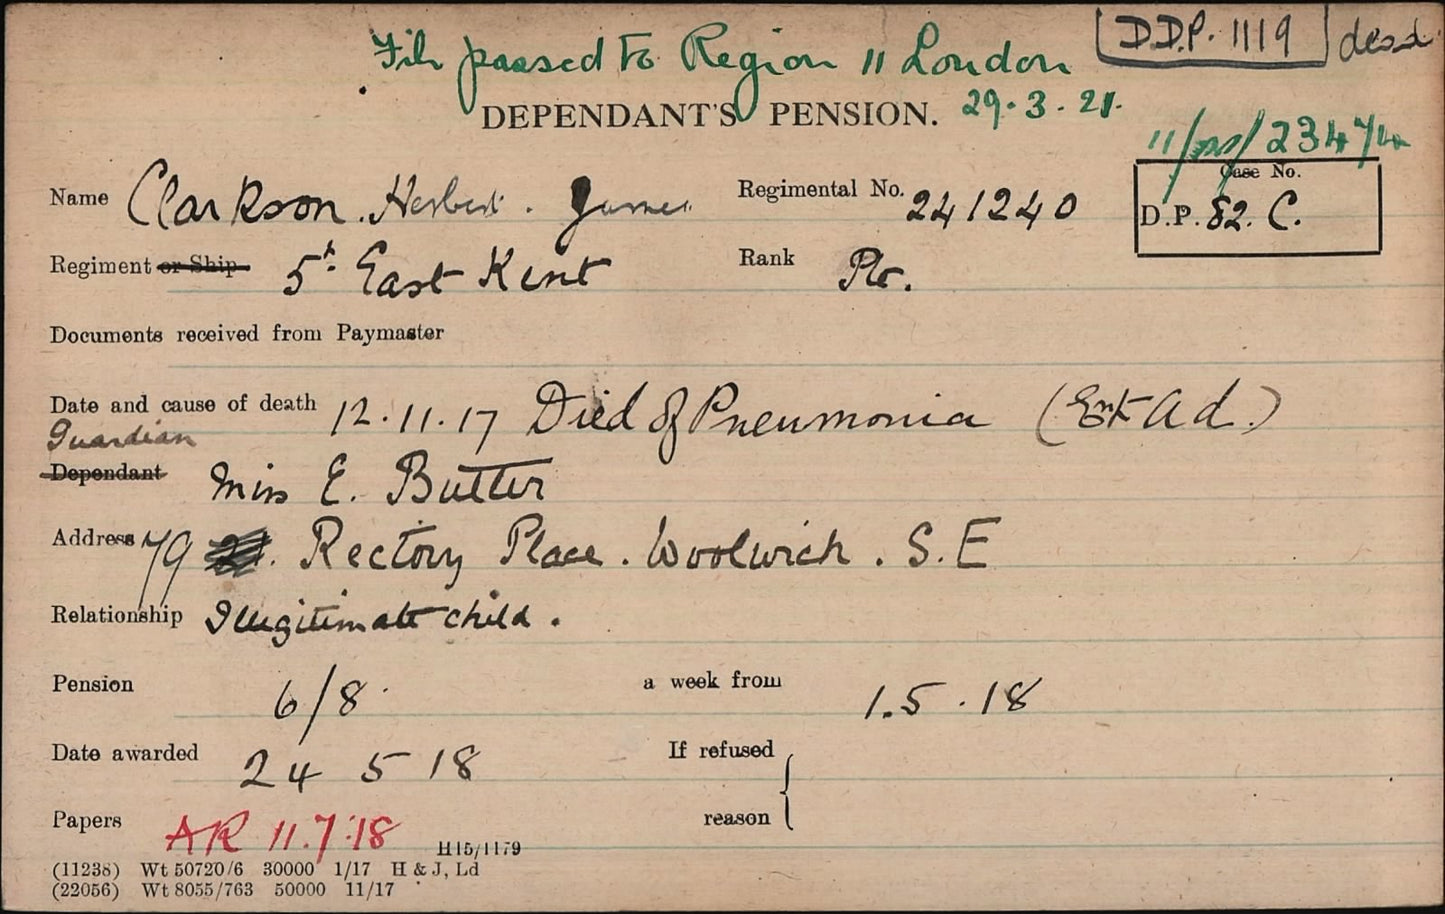 D.D.P. 1119 dead
File passed to Region 11 London
DEPENDANT'S PENSION. 29.3.21.
11/ 23474
Name Clarkson. Herbert. James Regimental No. 241240
Case No.
D.P. 82. C.
Regiment or Ship 5th East Kent Rank Pte.
Documents received from Paymaster
Date and cause of death 12.11.17 Died of Pneumonia (Ext Ad.)
Guardian
Dependant Miss E. Butter
Address 79 Rectory Place. Woolwich. S.E
Relationship Illegitimate child.
Pension 6/8 a week from 1.5.18
Date awarded 24 5 18 If refused
reason
Papers AR 11.7.18 H15/1179
(11238) Wt 50720/6 30000 1/17 H & J, Ld
(22056) Wt 8055/763 50000 11/17